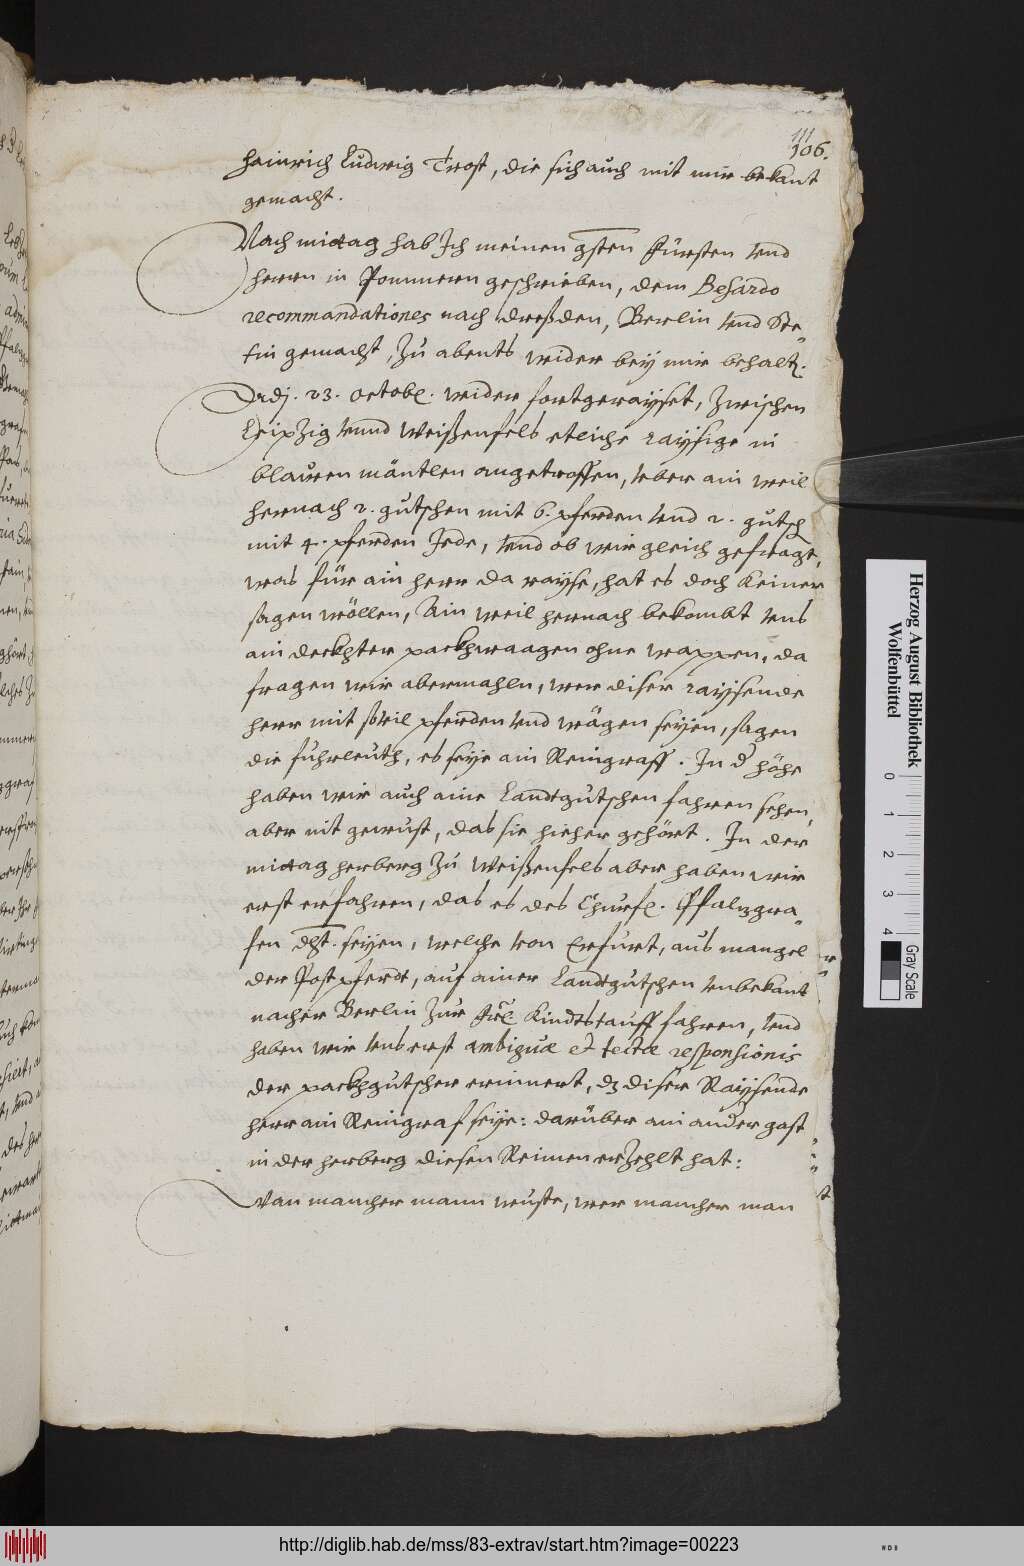 111
106.
Hainrich Ludwig Trost, die sich auch mit mir bekant
gemacht.
Nach mittag hab Ich meinen gsten Fürsten vnd
herrn in Pommern geschrieben, dem Besardo
recommandationes nach Dreßden, Berlin vnd Ste-
tin gemacht, Zu abents wider bey mir behalt.
Adj. 23. octob. wider fortgerayset, Zwischen
Leipzig vnnd Weißenfels etliche raysige in
blauen mäntlen angetroffen, vber ain weil
hernach 2. gutschen mit 6. pferden vnd 2. gutsch
mit 4. pferden Jede, vnd ob wir gleich gefragt,
was für ain herr da rayse, hat es doch keiner
sagen wöllen, Ain weil hernach bekombt vns
ain deckhter packhwaagen ohne wappen, da
fragen wir abermahln, wer diser raysende
herr mit souil pferden vnd wägen seyen, sagen
die fuhrleuth, es seye ain Reingraff. In d höhe
haben wir auch aine Landtgutschen fahren sehen,
aber nit gewust, das sie hieher gehört. In der
mittag herberg Zu Weißenfels aber haben wir
erst erfahren, das es des Churf. Pfalzgra-
fen dht. seyen, welche von Erfurt, aus mangel
der Post pferdt, auf ainer Landtgutschen vnbekant
nacher Berlin zur Frl Kindtstauff fahren, vnd
haben wir vns erst ambiguæ et tectæ responsionis
der packhgutscher erinnert, dz diser Raysende
herr ain Reingraf seye: darüber ain ander gast
in der herberg diesen Reimen erzehlt hat:
Wan mancher mann wuste, wer mancher man
Herzog August Bibliothek
Wolfenbüttel
0 1 2 3 4
Gray Scale
http://diglib.hab.de/mss/83-extrav/start.htm?image=00223